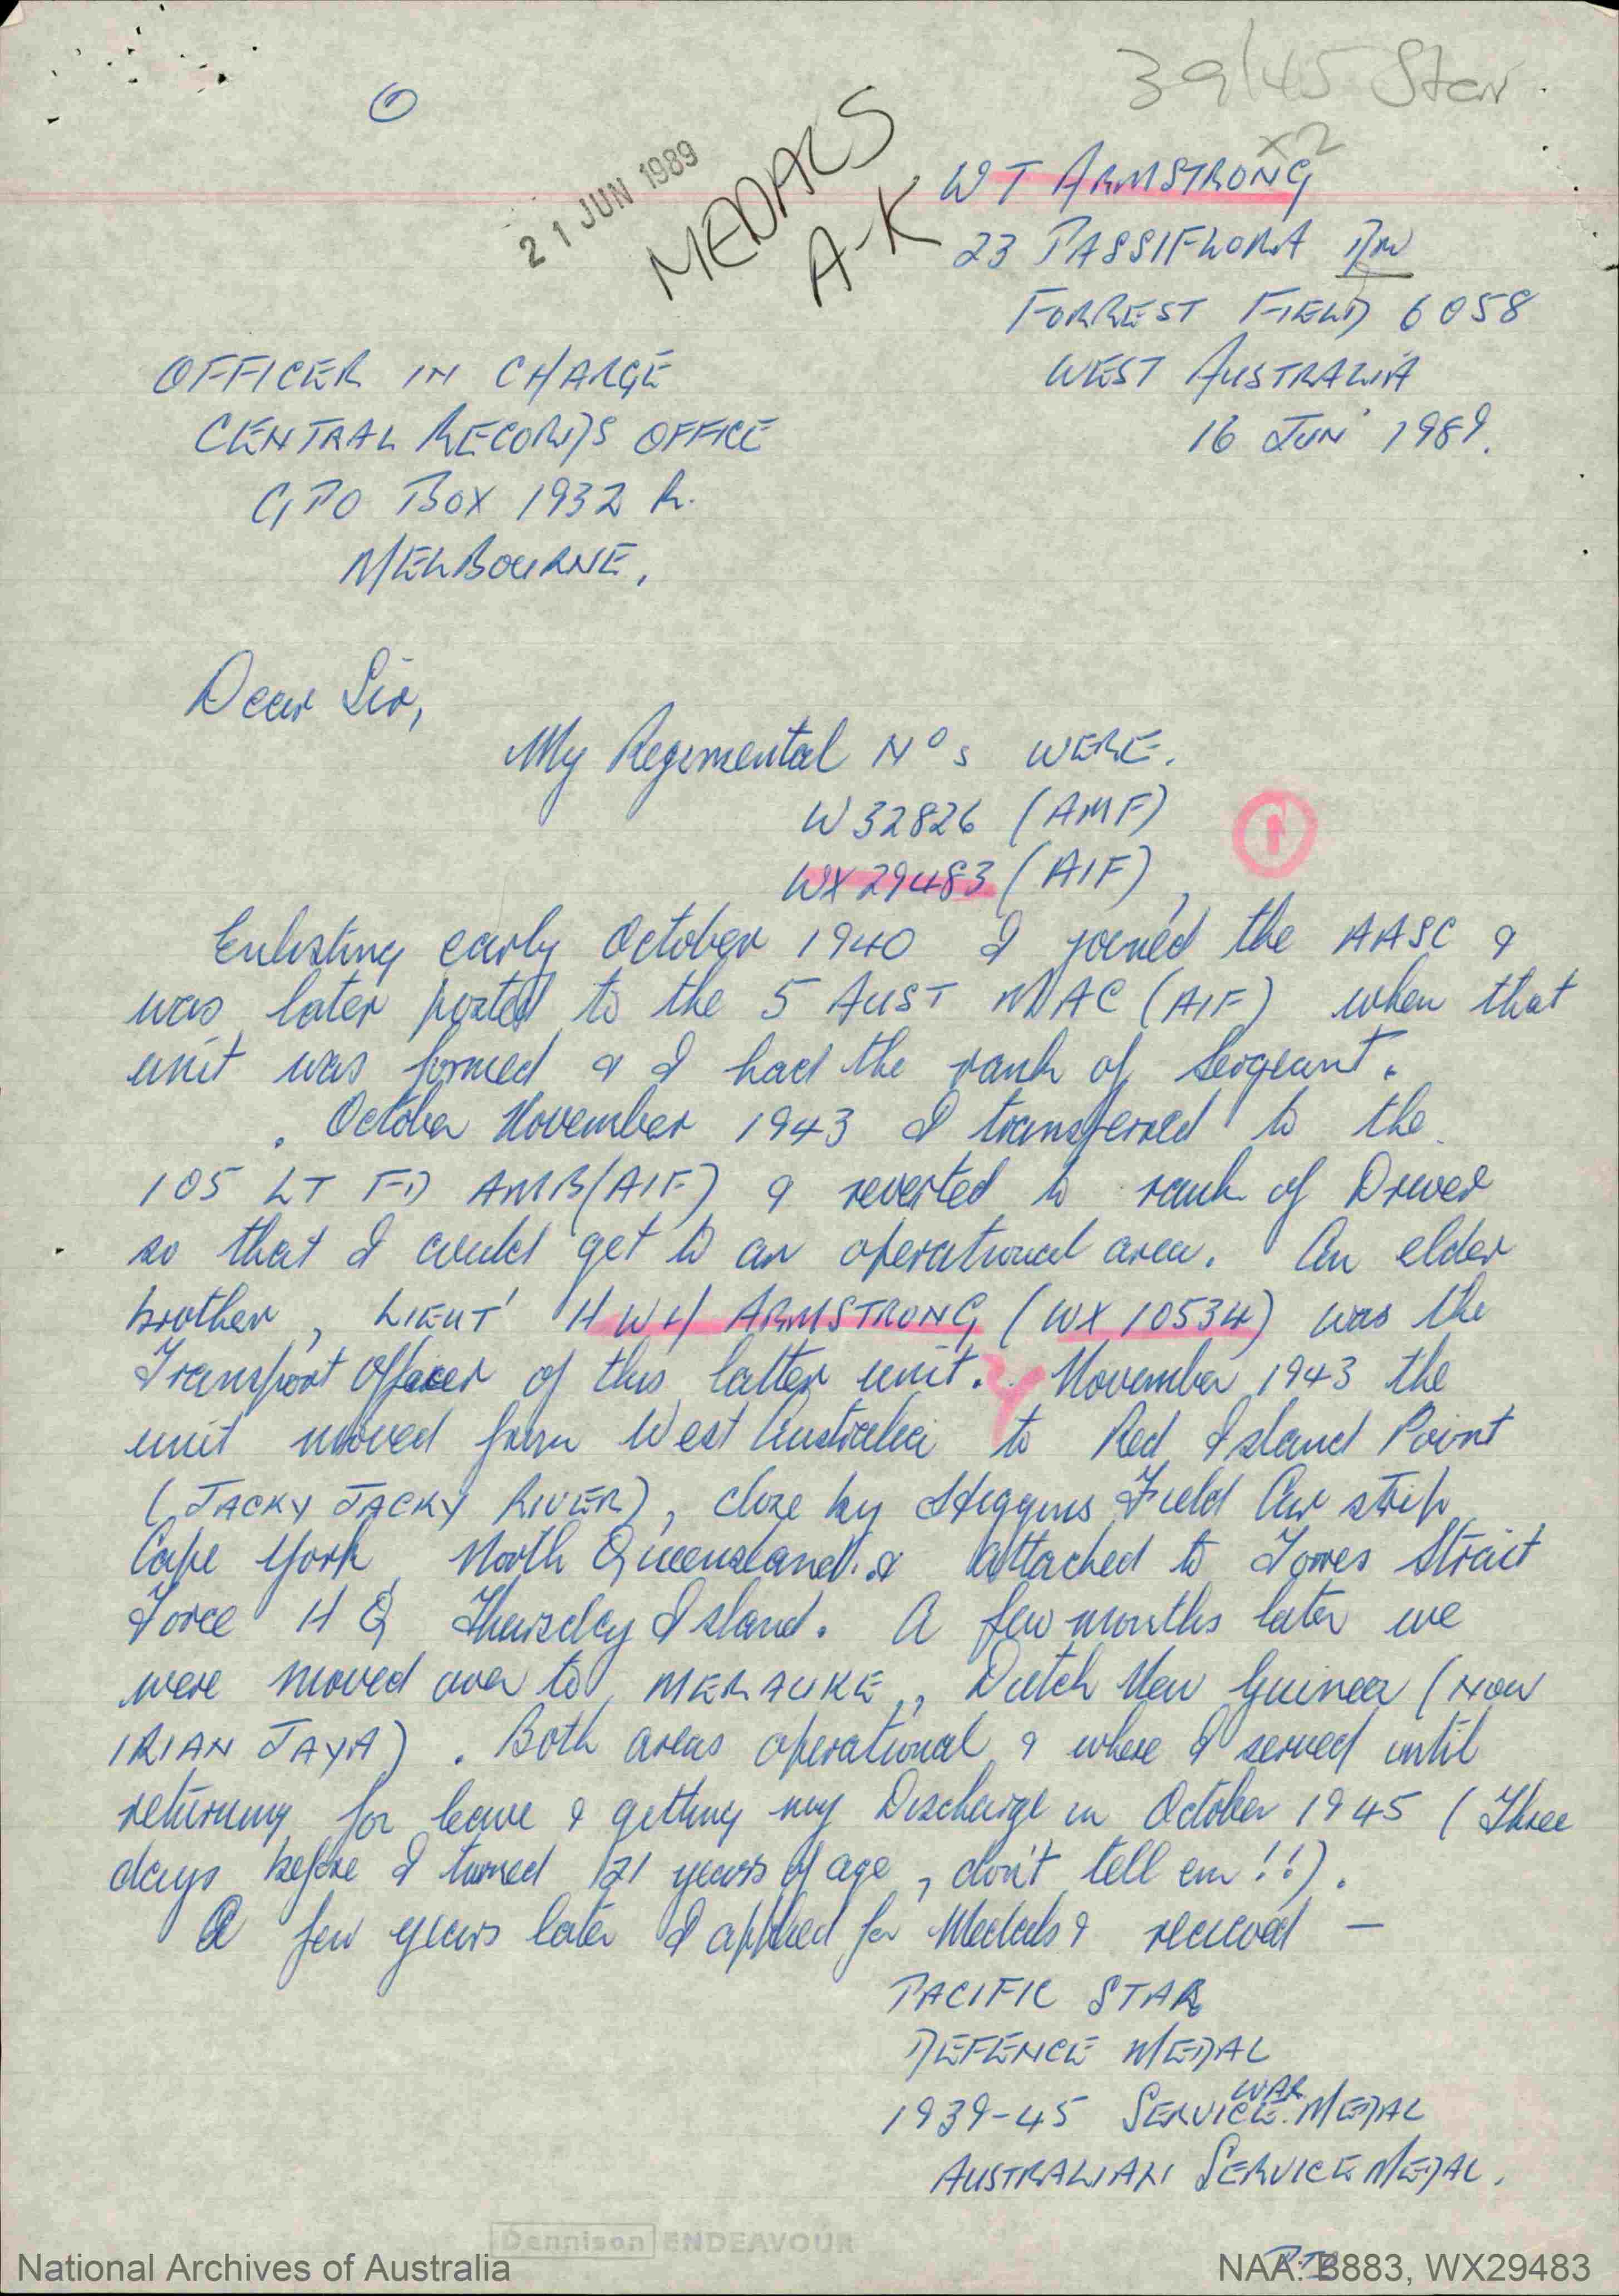 39/45 Star
x2
21 JUN 1989
MEDALS
A-K
W T ARMSTRONG
23 PASSIFLORA
FORREST FIELD 6058
WEST AUSTRALIA
16 JUN 1989.
OFFICER IN CHARGE
CENTRAL RECORDS OFFICE
GPO BOX 1932 R.
MELBOURNE,
Dear Sir,
My Regimental Nos WERE.
W32826 (AMF)
WX29483 (AIF),
1
Enlisting early October 1940 I joined the AASC &
was later posted to the 5 AUST MAC (AIF) when that
unit was formed & I had the rank of Sergeant.
October November 1943 I transferred to the
105 LT FD AMB (AIF) & reverted to rank of Driver
so that I could get to an operational area. An elder
brother, LIEUT' H W H ARMSTRONG (WX 10534) was the
Transport Officer of this latter unit. November 1943 the
unit moved from West Australia to Red Island Point
(JACKY JACKY RIVER), close by Higgins Field Air strip
Cape York, North Queensland. & attached to Torres Strait
Force H Q Thursday Island. A few months later we
were moved over to MERAUKE, Dutch New Guinea (NOW
IRIAN JAYA). Both areas operational & where I served until
returning for leave & getting my Discharge in October 1945 (Three
days before I turned 21 years of age, don't tell em!!).
A few years later I applied for Medals & received —
PACIFIC STAR
DEFENCE MEDAL
WAR
1939-45 SERVICE MEDAL
AUSTRALIAN SERVICE MEDAL.
Dennison ENDEAVOUR
National Archives of Australia
NAA: B883, WX29483